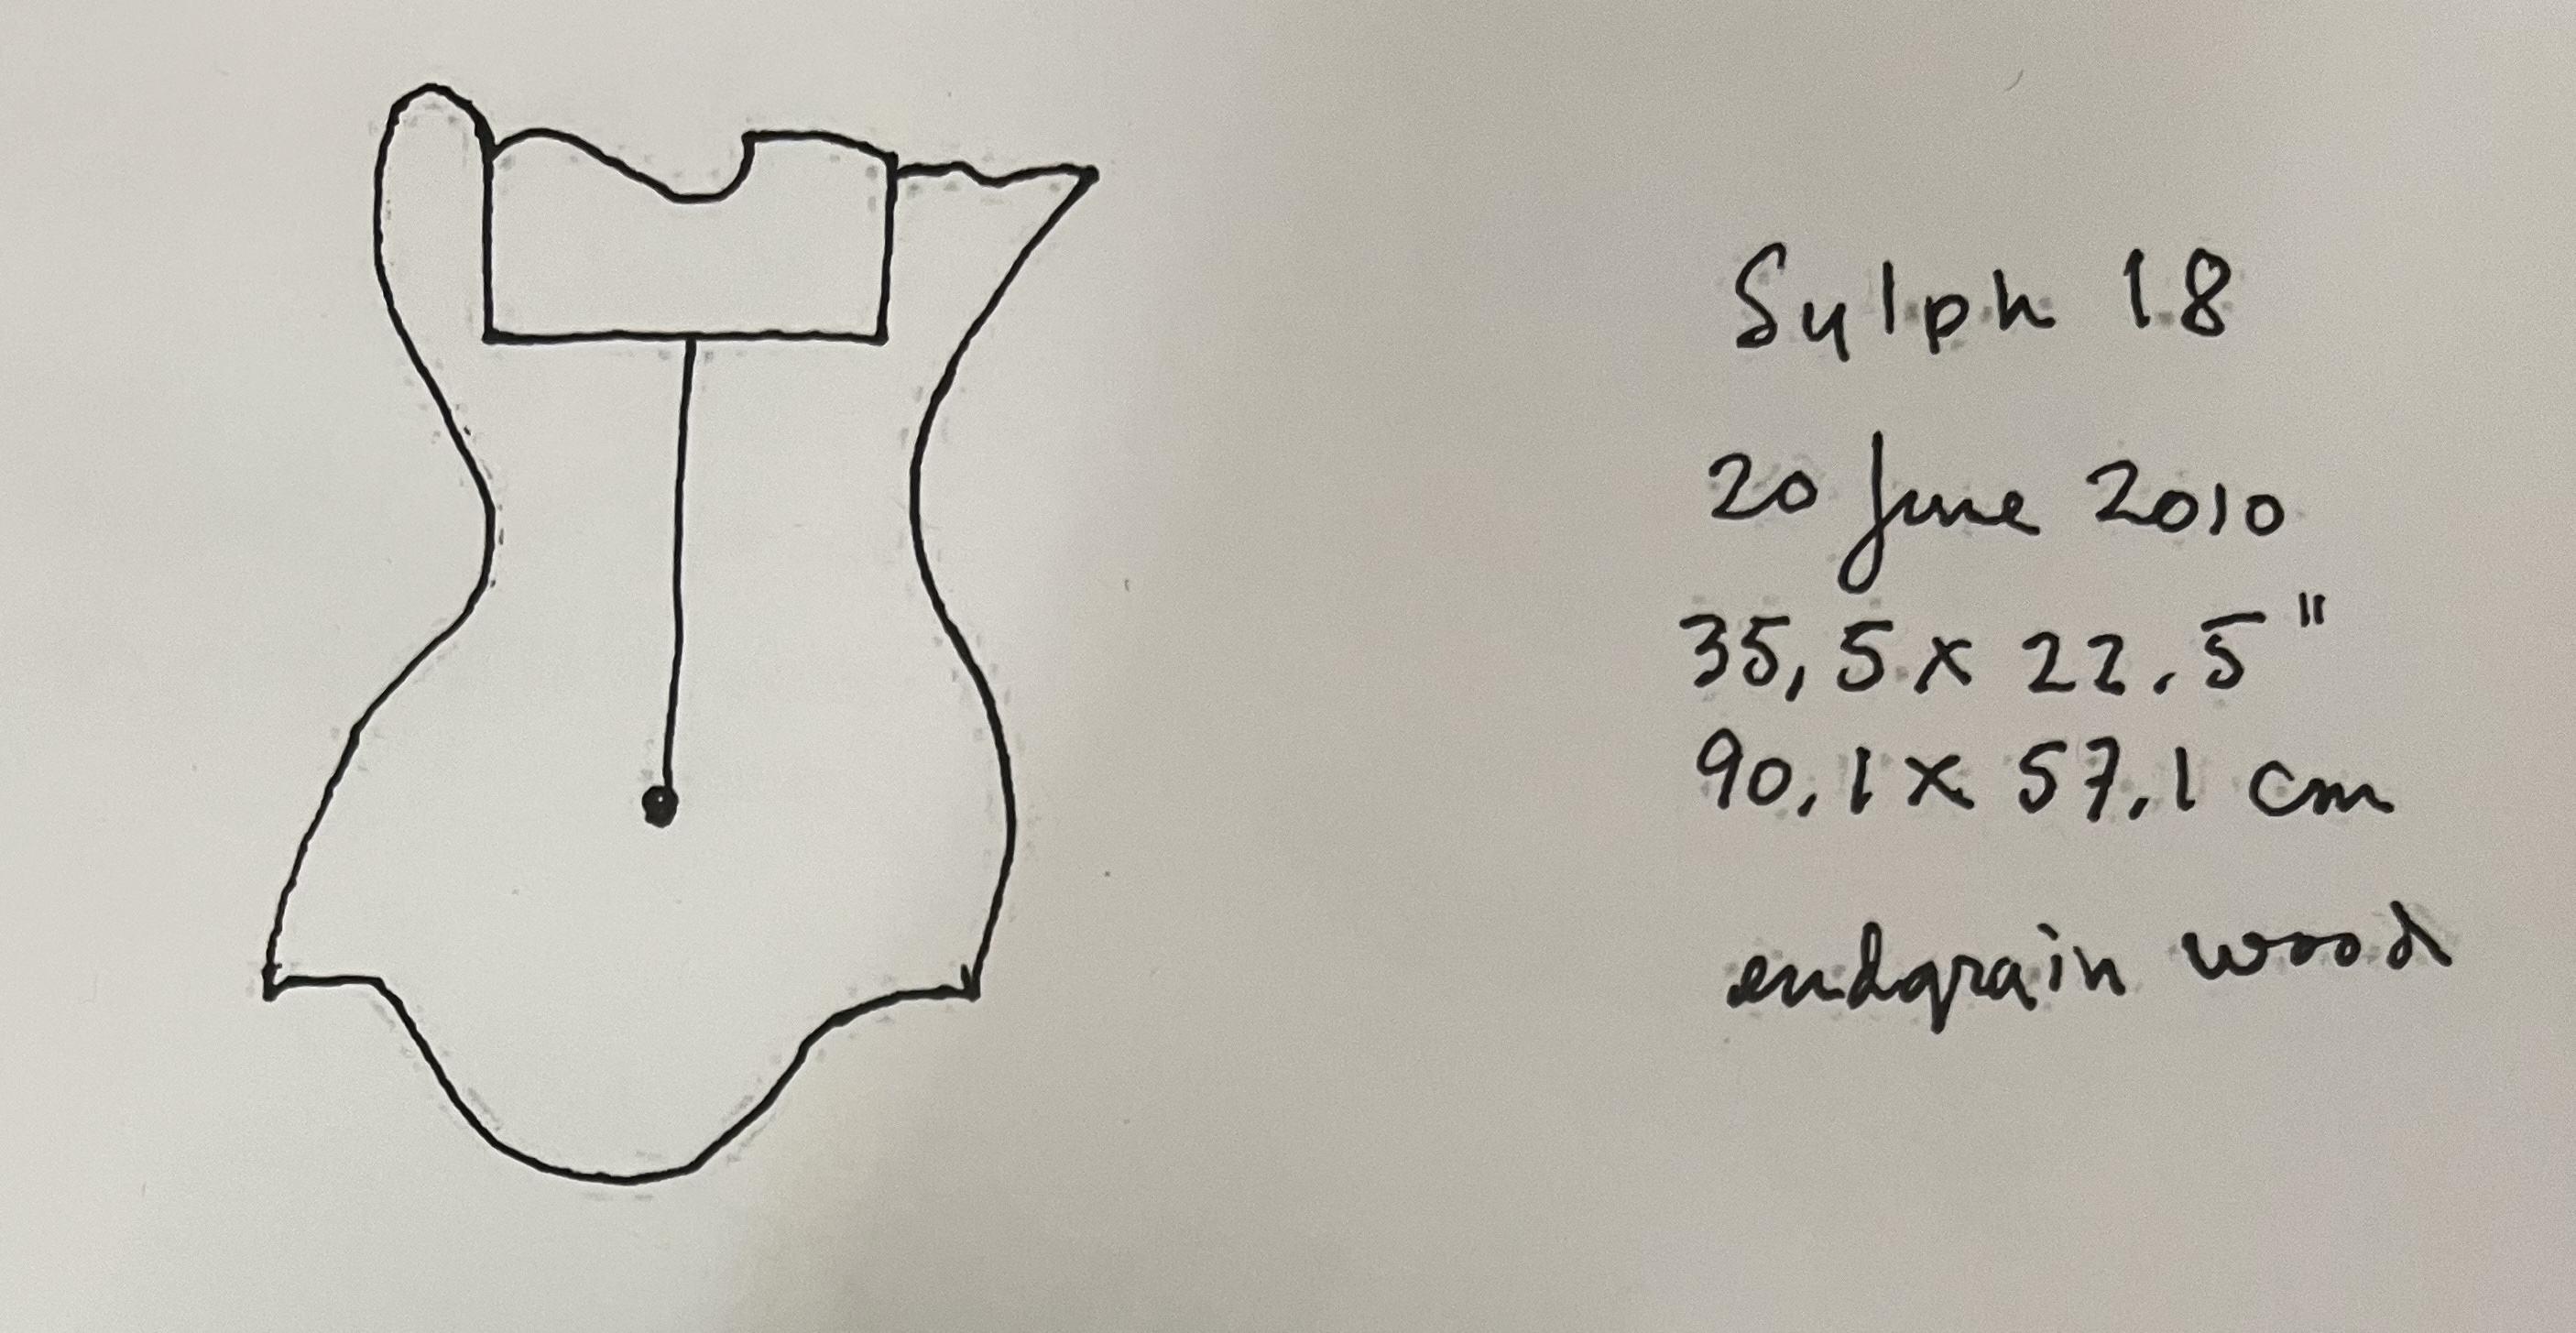 Sylph 18
20 June 2010
35,5 x 22.5"
90,1 x 57.1 cm
endgrain wood